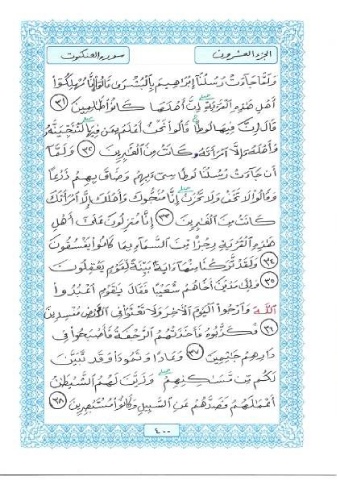 الجزء العشرون سورة العنكبوت
وَلَمَّا جَاءَتْ رُسُلُنَا إِبْرَاهِيمَ بِالْبُشْرَىٰ قَالُوا إِنَّا مُهْلِكُوا
أَهْلِ هَٰذِهِ الْقَرْيَةِ إِنَّ أَهْلَهَا كَانُوا ظَالِمِينَ ٣١
قَالَ إِنَّ فِيهَا لُوطًا قَالُوا نَحْنُ أَعْلَمُ بِمَن فِيهَا لَنُنَجِّيَنَّهُ
وَأَهْلَهُ إِلَّا امْرَأَتَهُ كَانَتْ مِنَ الْغَابِرِينَ ٣٢ وَلَمَّا
أَن جَاءَتْ رُسُلُنَا لُوطًا سِيءَ بِهِمْ وَضَاقَ بِهِمْ ذَرْعًا
وَقَالُوا لَا تَخَفْ وَلَا تَحْزَنْ إِنَّا مُنَجُّوكَ وَأَهْلَكَ إِلَّا امْرَأَتَكَ
كَانَتْ مِنَ الْغَابِرِينَ ٣٣ إِنَّا مُنزِلُونَ عَلَىٰ أَهْلِ
هَٰذِهِ الْقَرْيَةِ رِجْزًا مِّنَ السَّمَاءِ بِمَا كَانُوا يَفْسُقُونَ
٣٤ وَلَقَد تَّرَكْنَا مِنْهَا آيَةً بَيِّنَةً لِّقَوْمٍ يَعْقِلُونَ
٣٥ وَإِلَىٰ مَدْيَنَ أَخَاهُمْ شُعَيْبًا فَقَالَ يَا قَوْمِ اعْبُدُوا
اللَّهَ وَارْجُوا الْيَوْمَ الْآخِرَ وَلَا تَعْثَوْا فِي الْأَرْضِ مُفْسِدِينَ
٣٦ فَكَذَّبُوهُ فَأَخَذَتْهُمُ الرَّجْفَةُ فَأَصْبَحُوا فِي
دَارِهِمْ جَاثِمِينَ ٣٧ وَعَادًا وَثَمُودَ وَقَد تَّبَيَّنَ
لَكُم مِّن مَّسَاكِنِهِمْ وَزَيَّنَ لَهُمُ الشَّيْطَانُ
أَعْمَالَهُمْ فَصَدَّهُمْ عَنِ السَّبِيلِ وَكَانُوا مُسْتَبْصِرِينَ ٣٨
٤٠٠